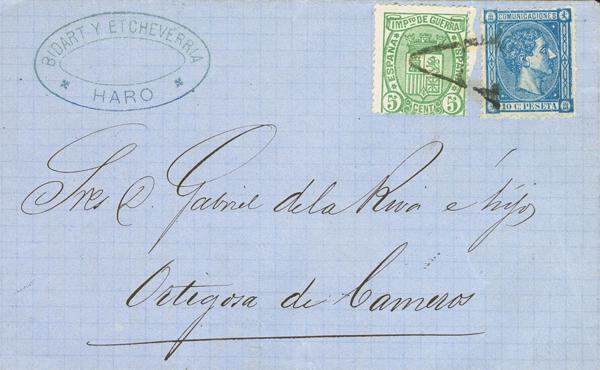 BIDART Y ETCHEVERRIA
HARO
IMPTO DE GUERRA
ESPAÑA
5 CENT. 5
COMUNICACIONES
10 C. PESETA
Sres D. Gabriel de la Riva e hijo
Ortigosa de Cameros